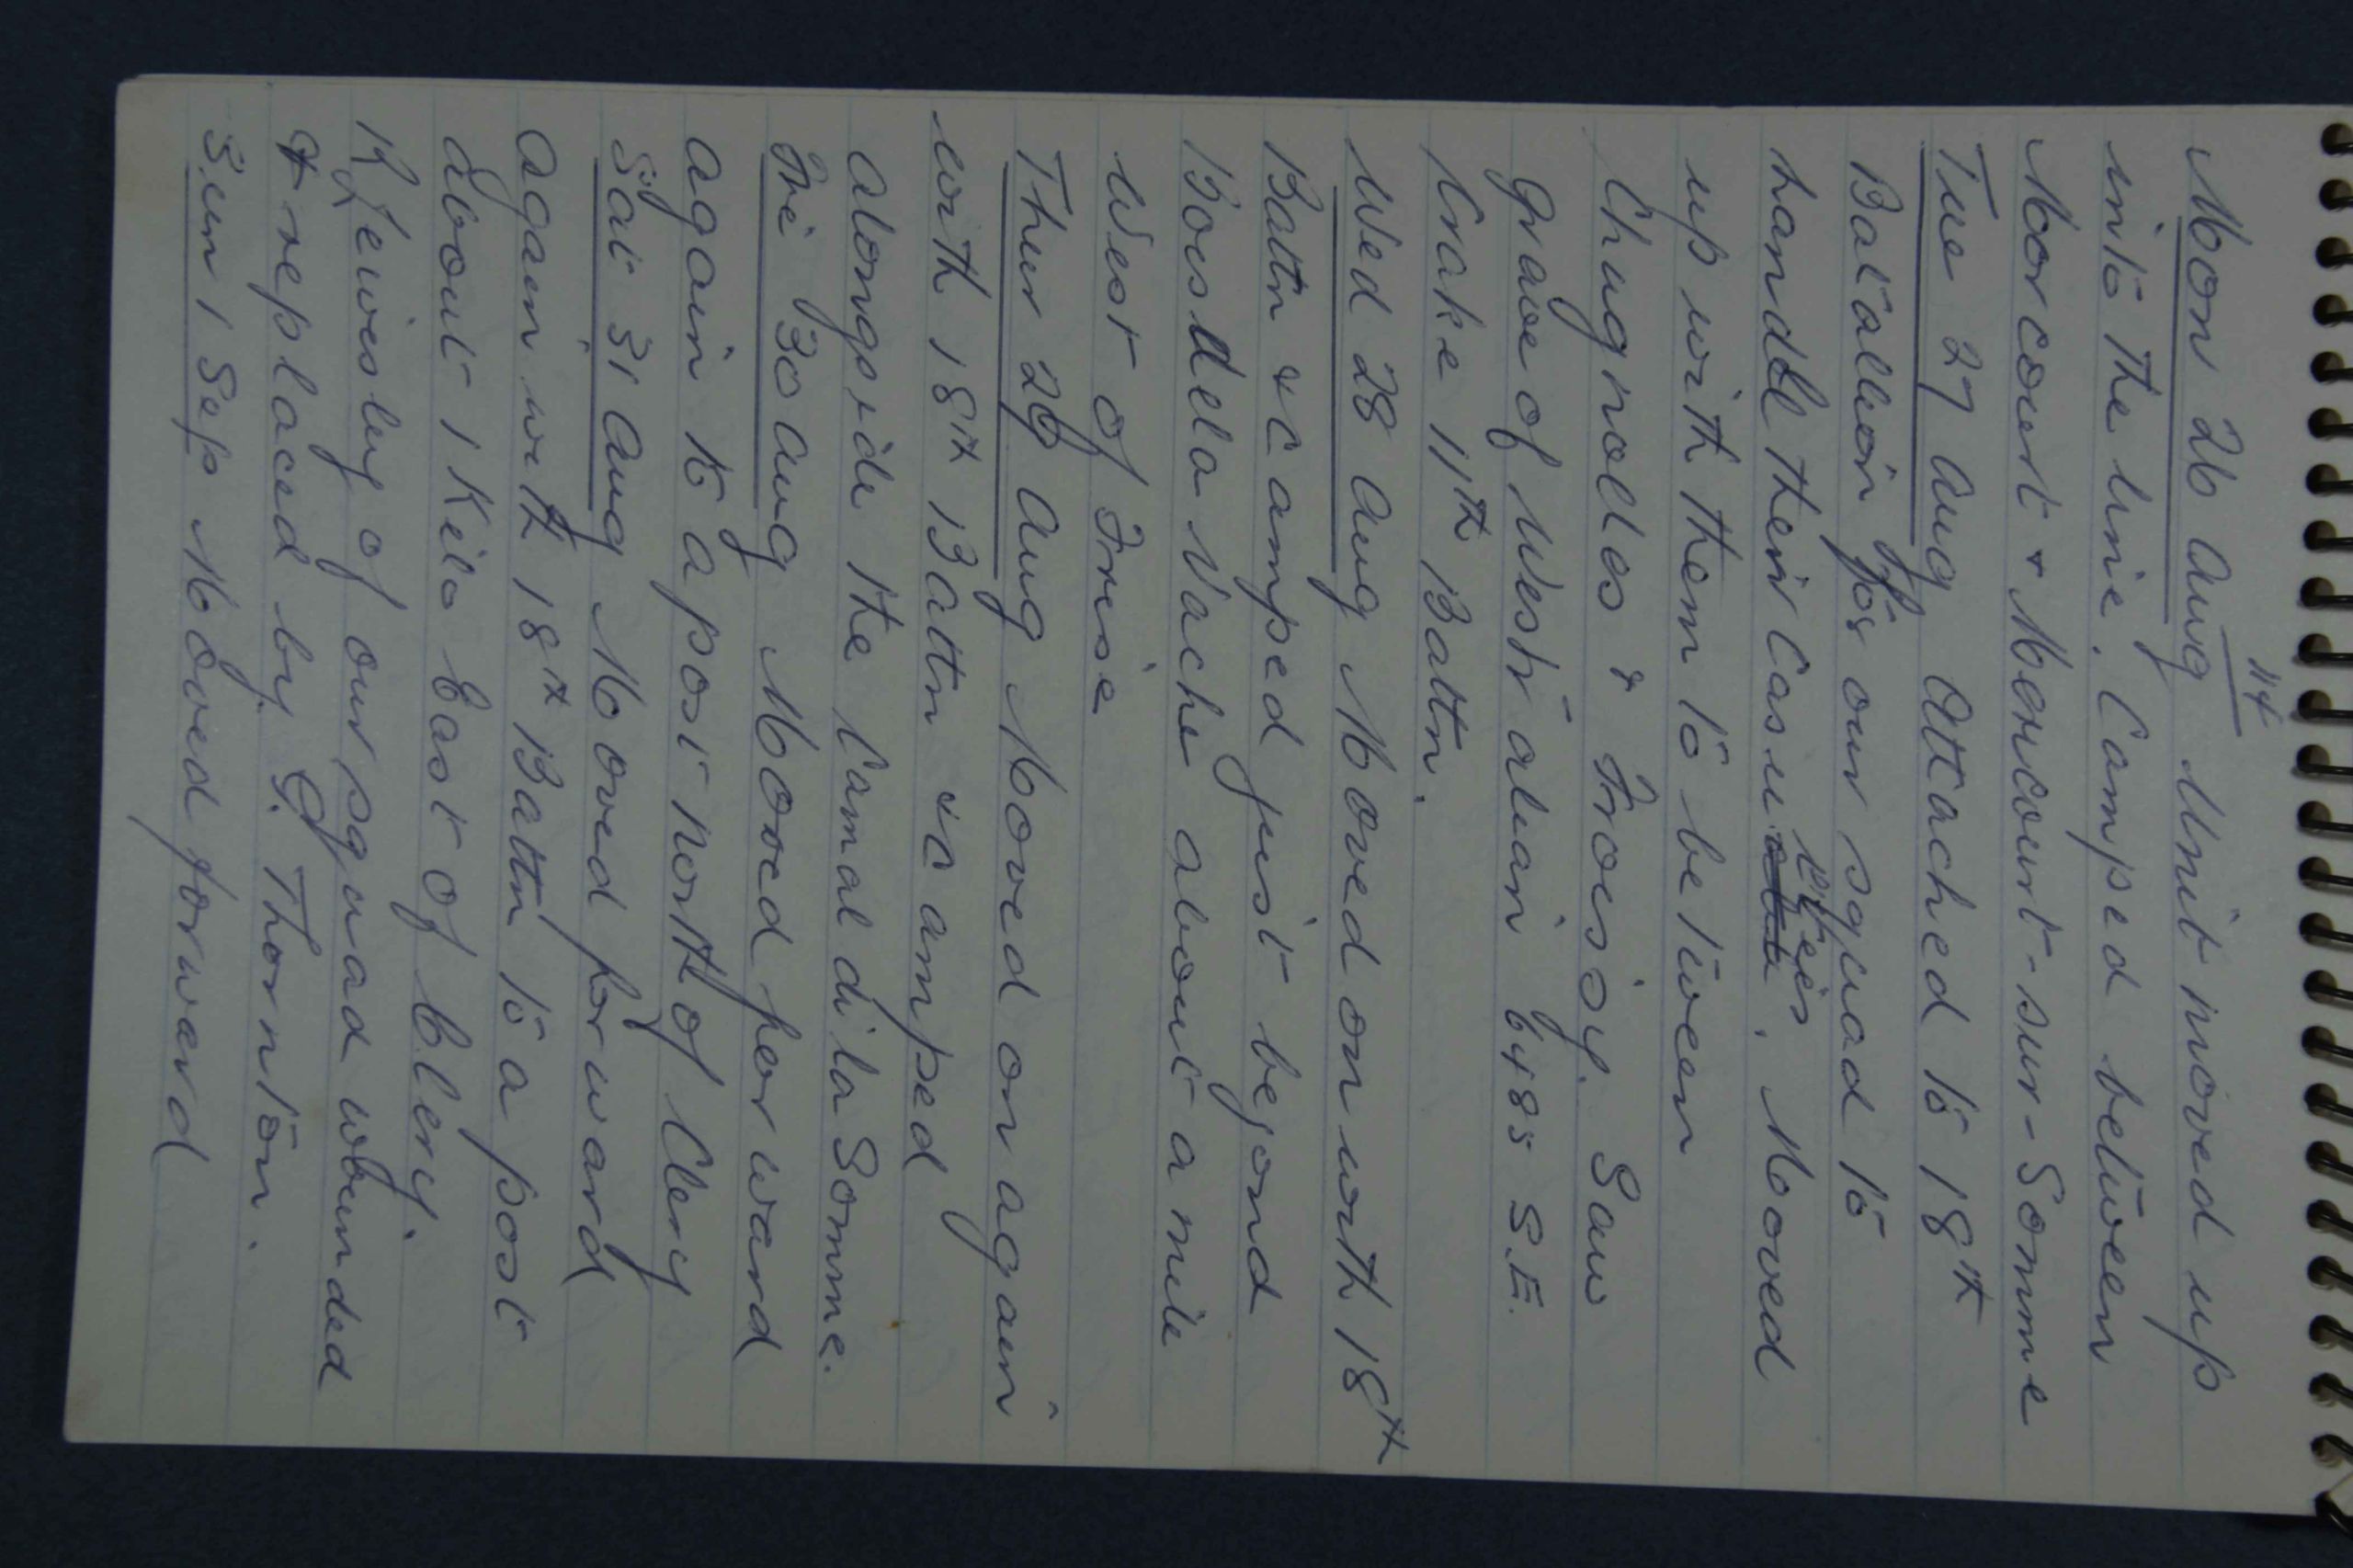 114
Mon 26 Aug Unit moved up
into the line. Camped between
Morcourt & Mericourt-sur-Somme
Tue 27 Aug Attached to 18th
Batallion for our squad to
handle their Casualties. Moved
up with them to between
Chugnolles & Froissy. Saw
grave of West alian 6485 S.E.
Crake 11th Battn.
Wed 28 Aug Moved on with 18th
Battn & camped just beyond
Bois dela Vache about a mile
West of Frise
Thur 29 Aug Moved on again
with 18th Battn & camped
alongside the Canal di la Somme.
Fri 30 Aug Moved forward
again to a post north of Clery
Sat 31 Aug Moved forward
again with 18th Battn to a post
about 1 Kilo East of Clery.
K Lewisley of our squad wounded
& replaced by G. Thornton.
Sun 1 Sep Moved forward